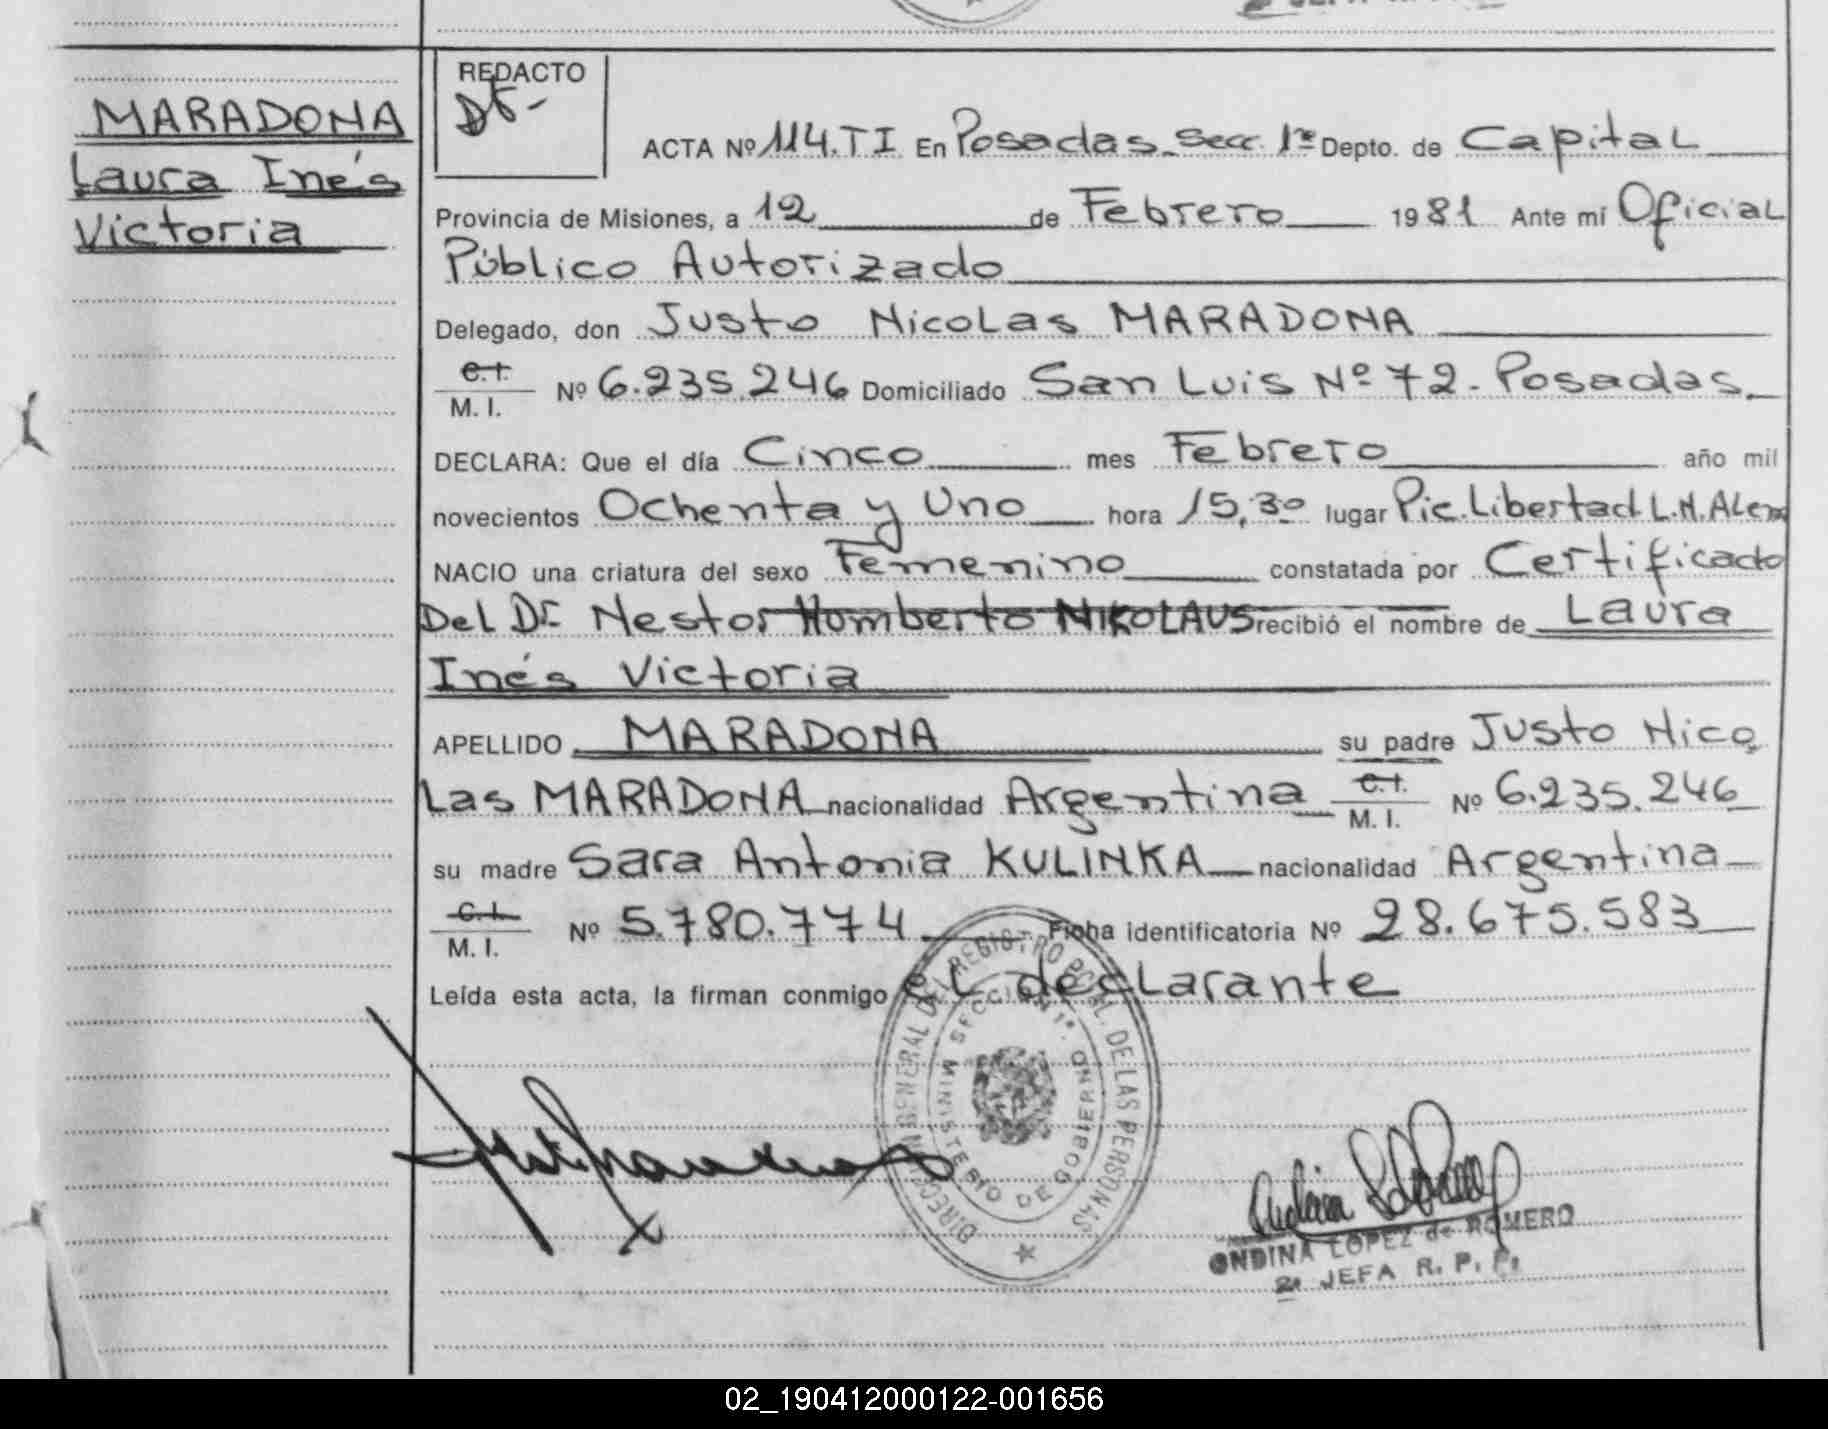 MARADONA
Laura Inés
Victoria
REDACTO
ACTA Nº 114.TI En Posadas. Secc. 1ª Depto. de Capital
Provincia de Misiones, a 12 de Febrero 1981 Ante mí Oficial
Público Autorizado
Delegado, don Justo Nicolas MARADONA
C.I.
M. I. Nº 6.235.246 Domiciliado San Luis Nº 72. Posadas.
DECLARA: Que el día Cinco mes Febrero año mil
novecientos Ochenta y Uno hora 15,30 lugar Pic. Libertad L.N. Alem
NACIO una criatura del sexo Femenino constatada por Certificado
Del Dr. Nestor Homberto NIKOLAUS recibió el nombre de Laura
Inés Victoria
APELLIDO MARADONA su padre Justo Nico
Las MARADONA nacionalidad Argentina C.I.
M. I. Nº 6.235.246
su madre Sara Antonia KULINKA nacionalidad Argentina
C.I.
M. I. Nº 5.780.774 Ficha identificatoria Nº 28.675.583
Leída esta acta, la firman conmigo el declarante
DIRECCION GENERAL DEL REGISTRO PCIAL. DE LAS PERSONAS
MINISTERIO DE GOBIERNO
SECCION 1ª.
ONDINA LOPEZ de ROMERO
2ª JEFA R. P. P.
02_190412000122-001656